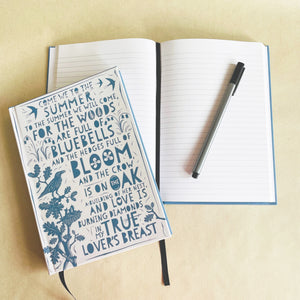 COME WE TO THE
SUMMER,
TO THE SUMMER WE WILL COME,
FOR THE WOODS
ARE FULL OF
BLUEBELLS
AND THE HEDGES FULL OF
BLOOM
AND THE CROW
IS ON THE OAK
A-BUILDING OF HER NEST,
AND LOVE IS
BURNING DIAMONDS
IN MY TRUE
LOVER'S BREAST